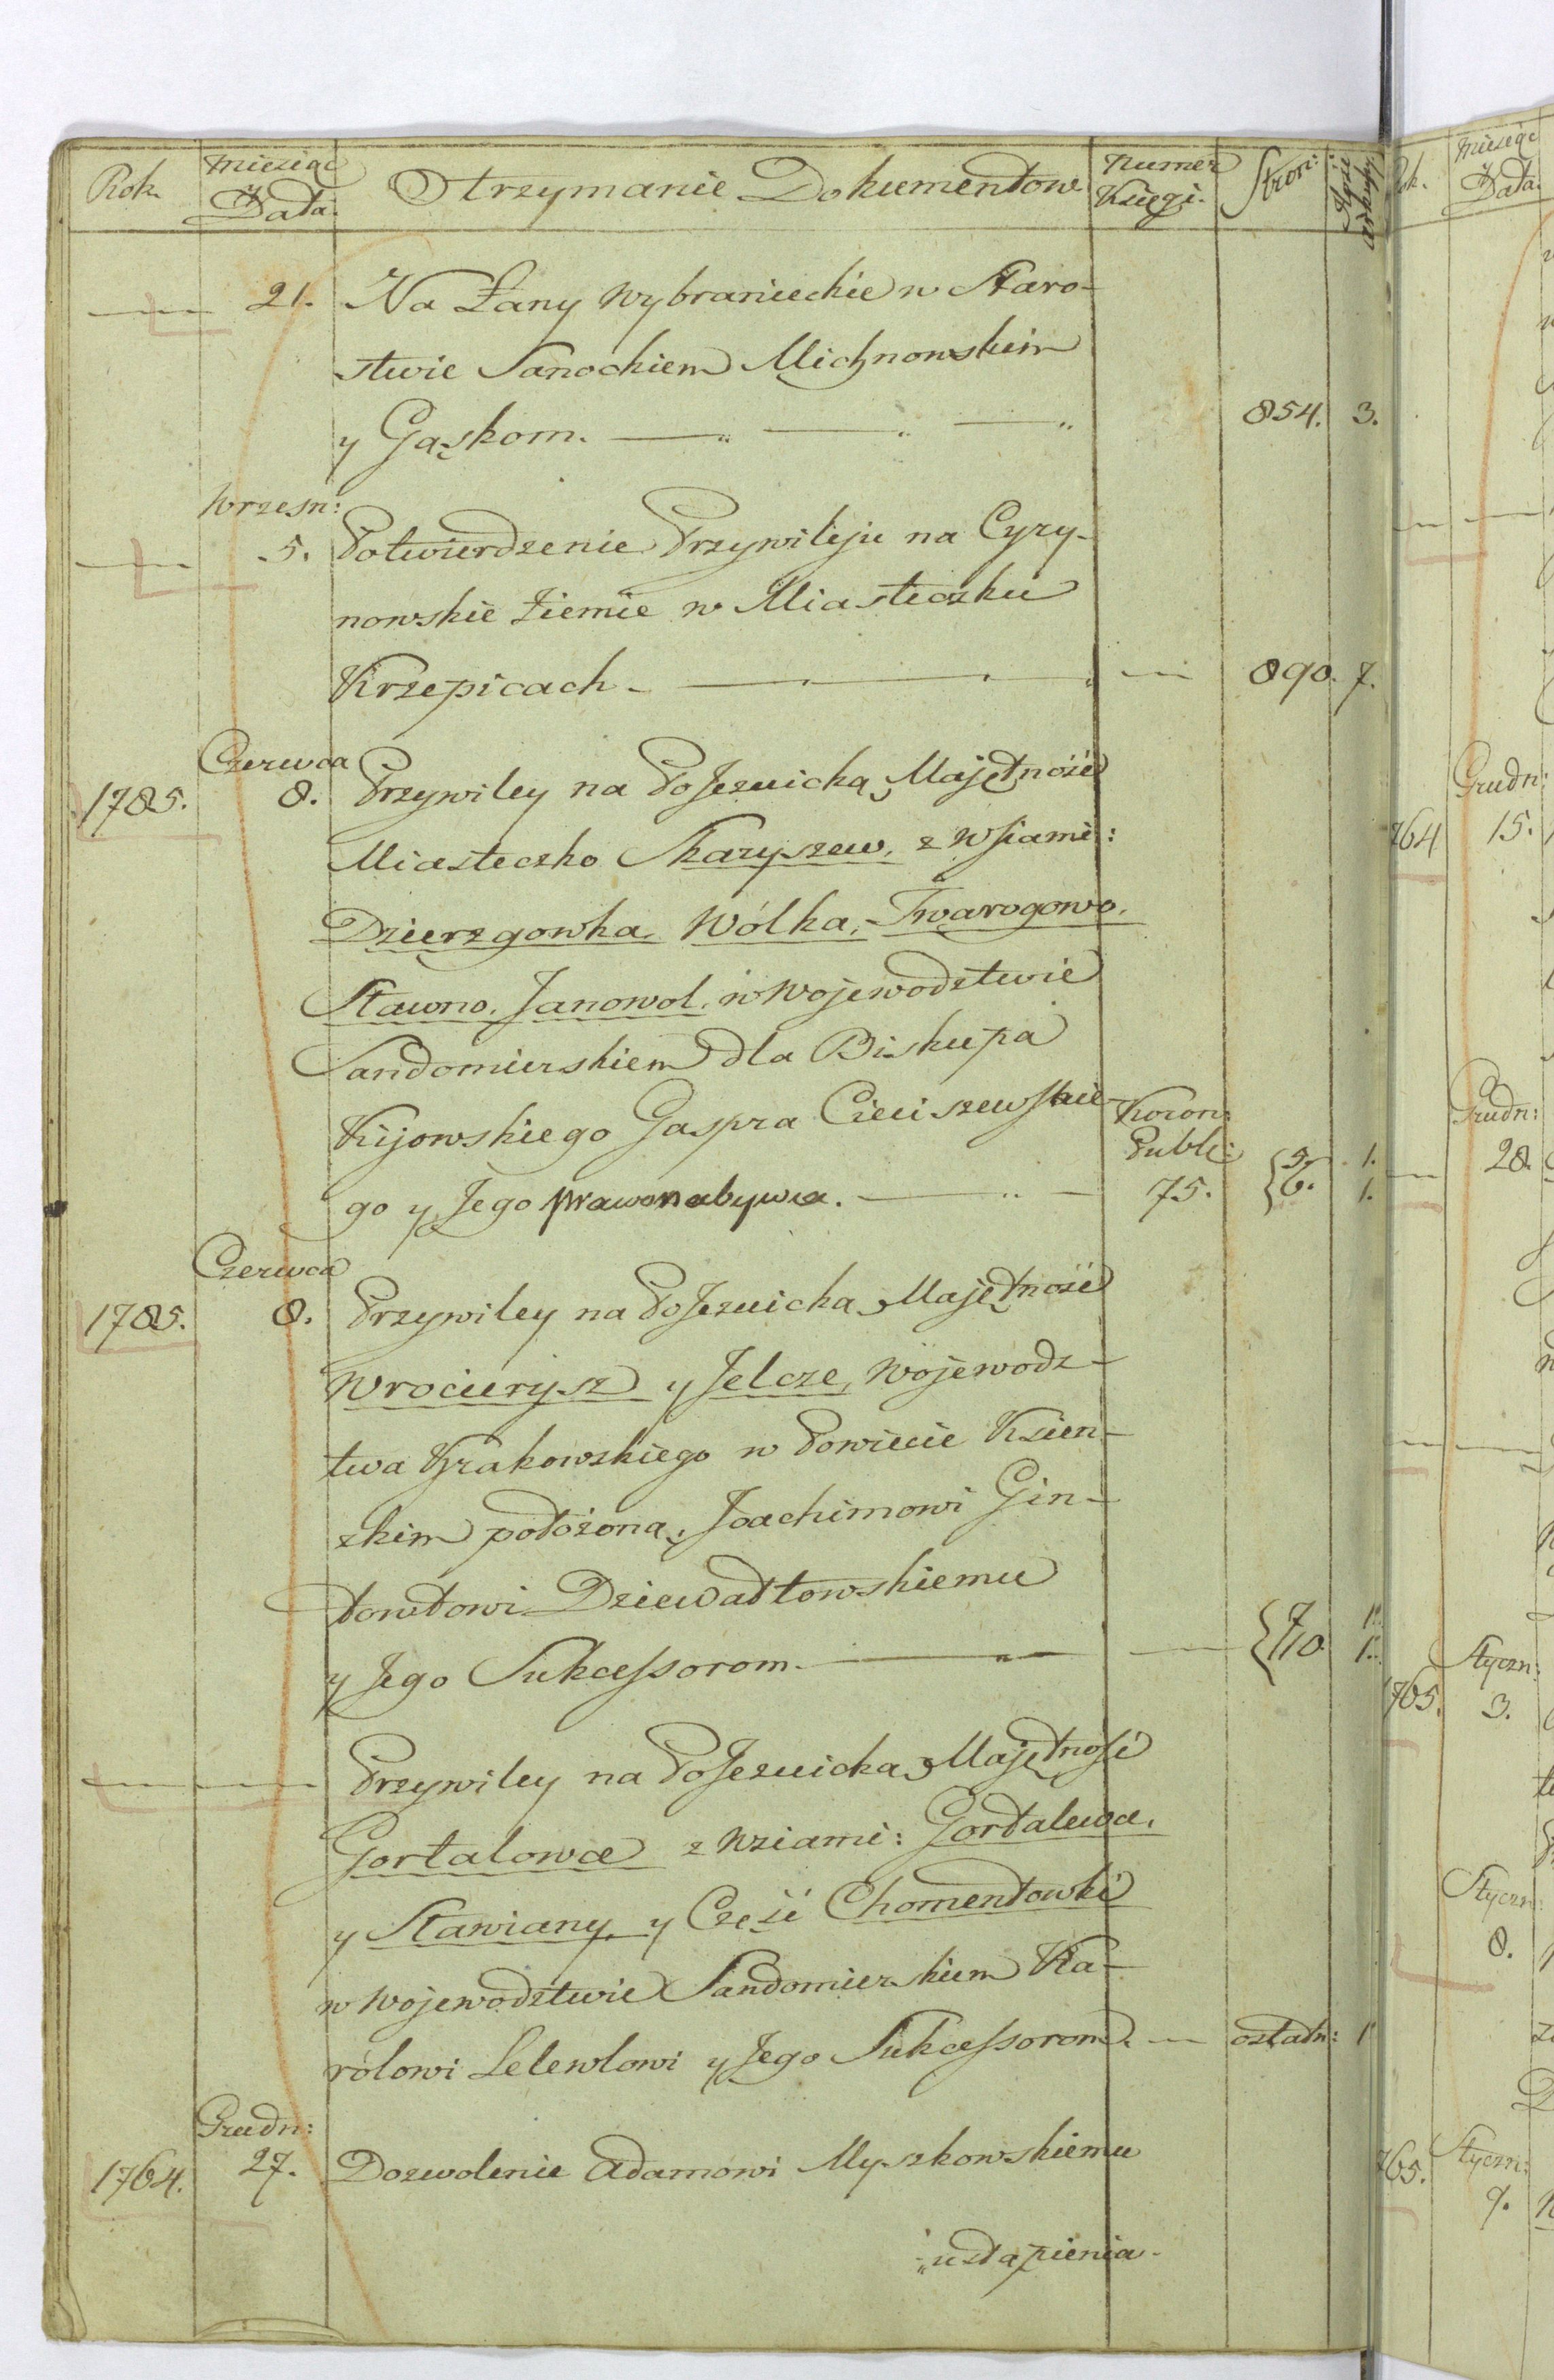 Rok. Miesiąc Otrzymanie Dokumentow Numer Stron: Ilość
Data. Księgi. arkuszy
21. Na Łany Wybranieckie w Staro-
stwie Sanockiem Michnowskim
y Gąskom. 854. 3.
Wrzesn:
5. Potwierdzenie Przywileju na Cyry-
nowskie Ziemie w Miasteczku
Krzepicach 890. 7.
Czerwca
1785. 8. Przywiley na PoJezuicką Majętność
Miasteczko Skaryszew, z Wsiami:
Dzierzgowka, Wólka, Twarogowo.
Stawno. Janowol. w Wojewodztwie
Sandomierskiem dla Biskupa
Kijowskiego Gaspra Cieciszewskie- Koron:
go y Jego prawonabywca. Publ: 5. 1.
75. 6. 1.
Czerwca
1785. 8. Przywiley na PoJezuicką Majętność
Wrocierysz y Jelcze, Wojewodz-
twa Krakowskiego w Powiecie Ksien-
skim położoną, Joachimowi Gin-
towtowi Dziewałtowskiemu 7 1.
y Jego Sukcessorom. 10 1.
Przywiley na PoJezuicką Majętność
Gortatowa z Wsiami: Gortalewa.
y Stawiany y Cześć Chomentowki
w Wojewodztwie Sandomierskiem Ka-
rólowi Lelewlowi y Jego Sukcessorom. ostatn: 1
Grudn:
1764. 27. Dozwolenie Adamowi Myszkowskiemu
ustąpienia-
Rok. Miesiąc
Data.
Grudn:
764 15.
Grudn:
28.
Styczn:
1765. 3.
Styczn:
8.
Styczn:
765. 9.